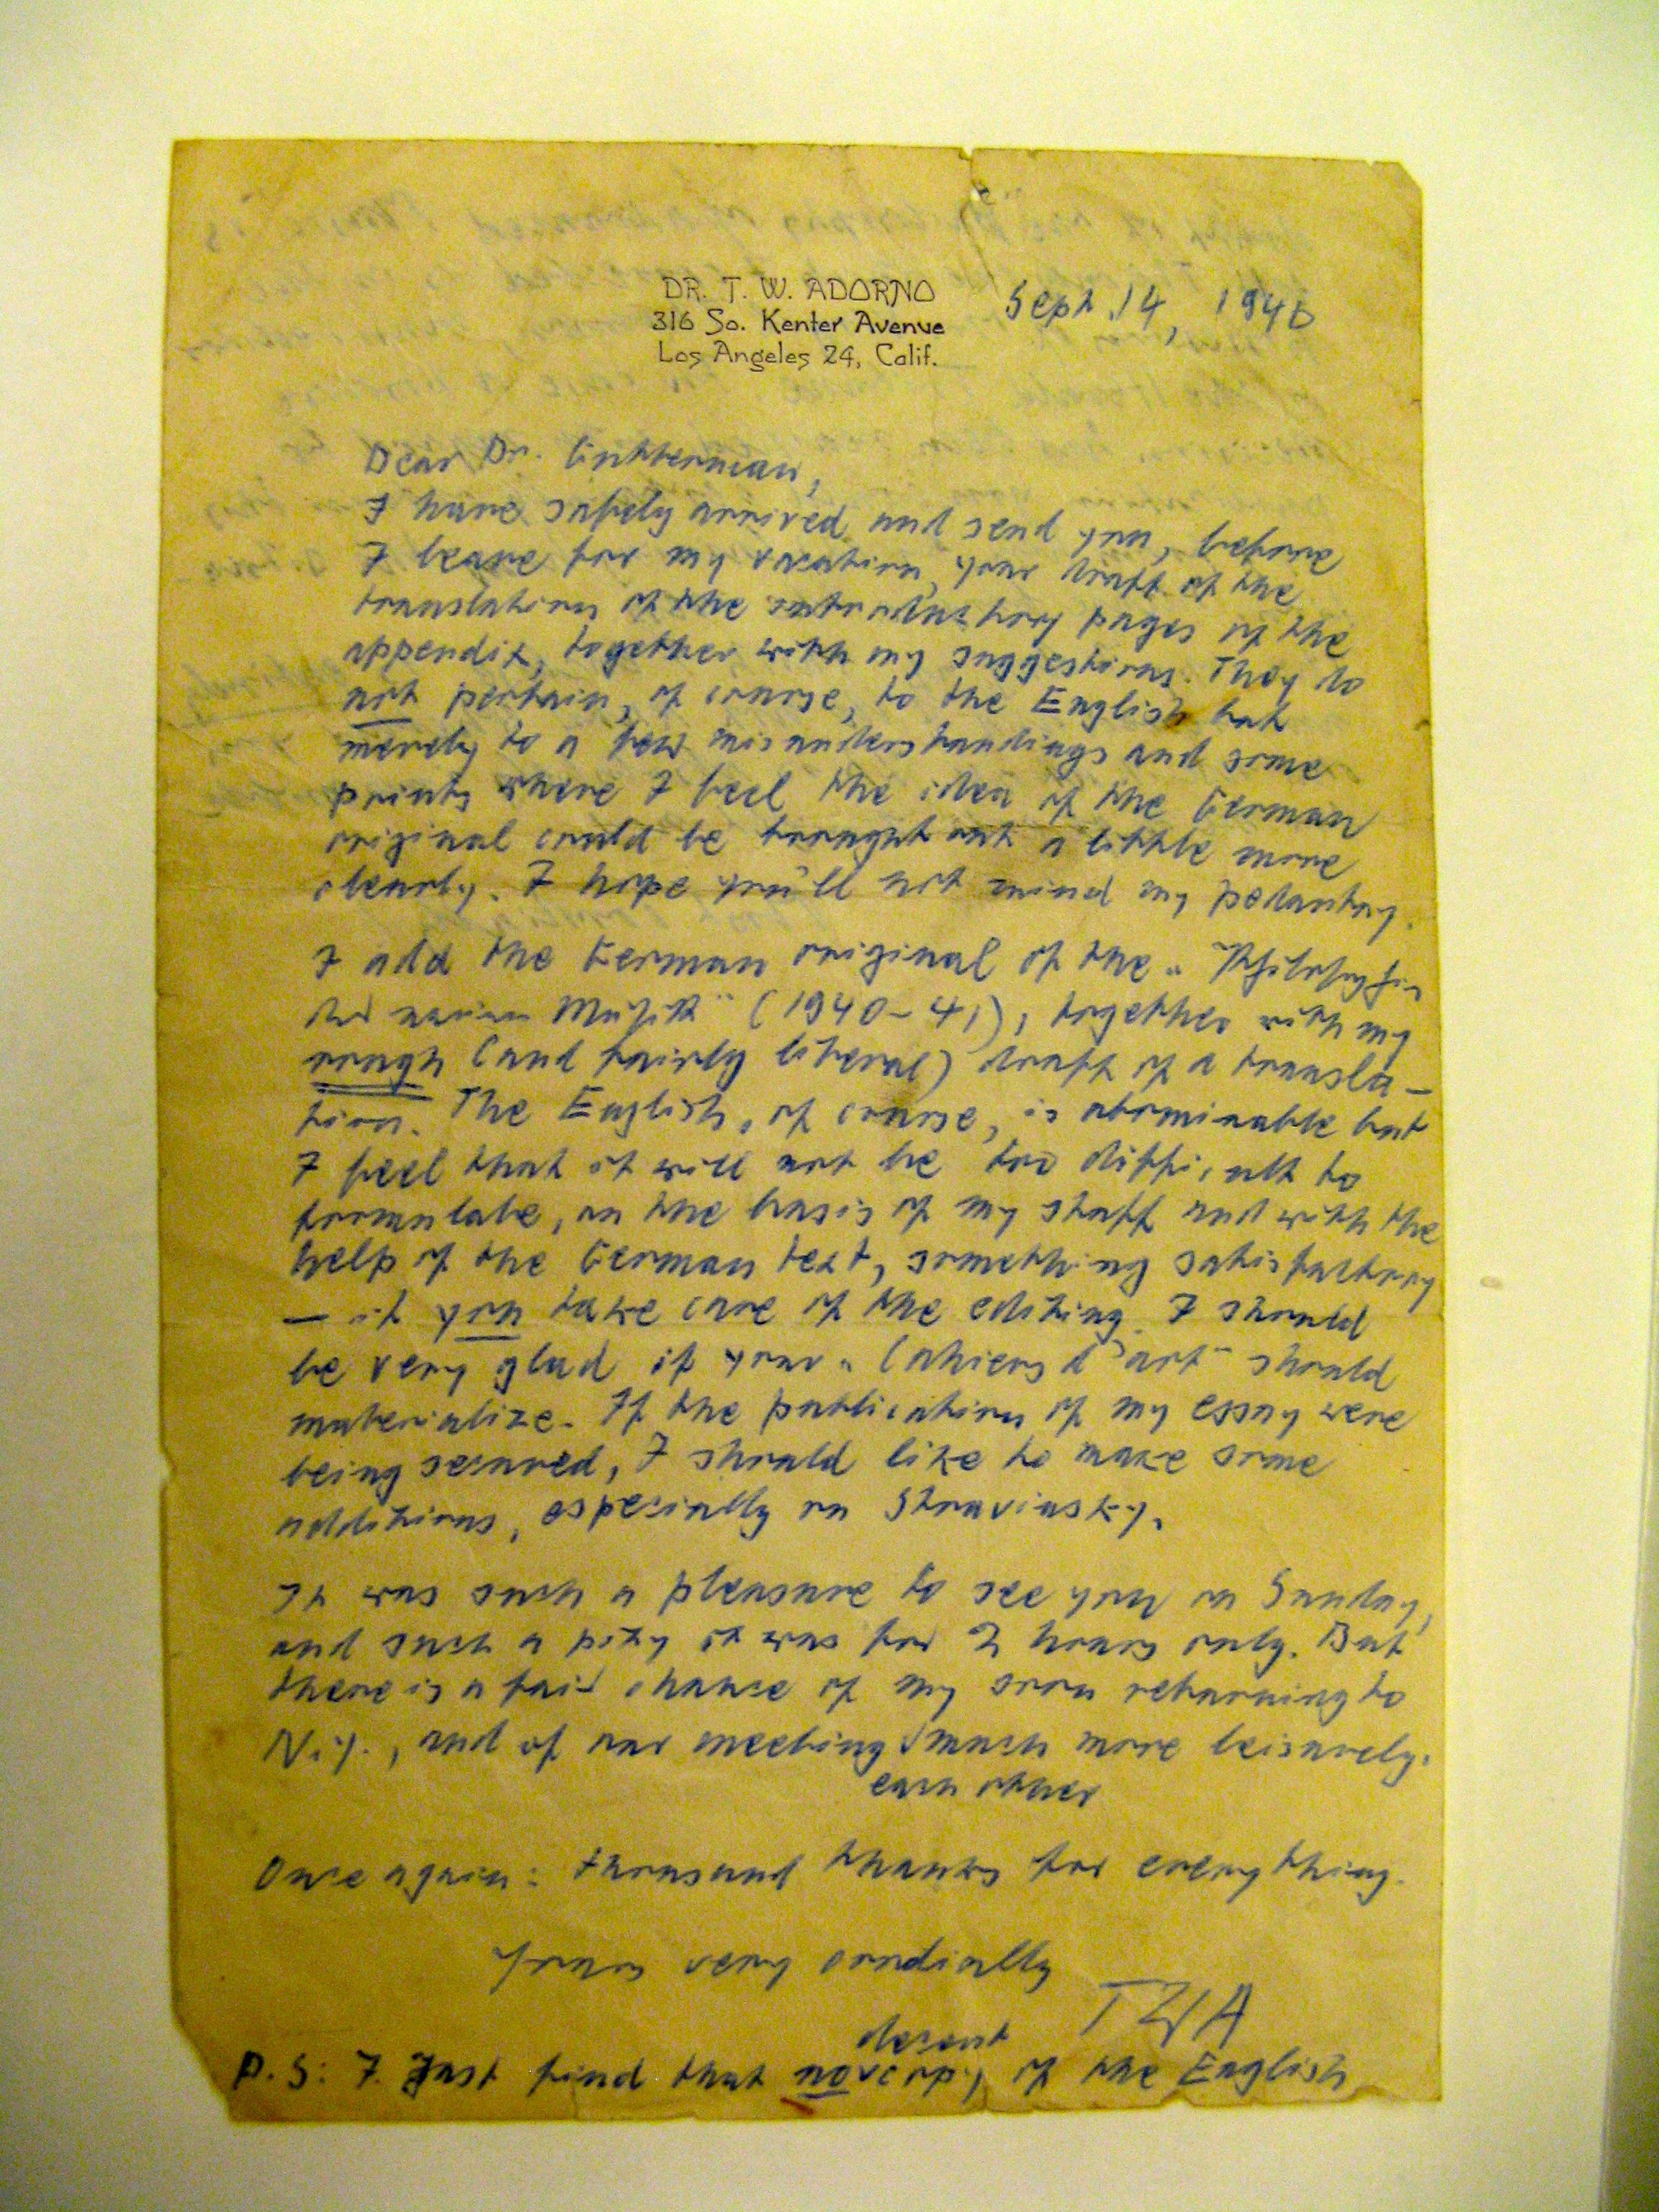 DR. T. W. ADORNO
316 So. Kenter Avenue
Los Angeles 24, Calif.
Sept. 14, 1946
Dear Dr. Guterman,
I have safely arrived and send you, before
I leave for my vacation, your draft of the
translation of the introductory pages of the
appendix, together with my suggestions. They do
not pertain, of course, to the English but
merely to a few misunderstandings and some
points where I feel the idea of the German
original could be brought out a little more
clearly. I hope you'll not mind my pedantry.
I add the German original of the "Philosophie
der neuen Musik" (1940-41), together with my
rough (and fairly literal) draft of a transla-
tion. The English, of course, is abominable but
I feel that it will not be too difficult to
formulate, on the basis of my stuff and with the
help of the German text, something satisfactory
– if you take care of the editing. I should
be very glad if your "Cahiers d'art" should
materialize. If the publication of my essay were
being secured, I should like to make some
additions, especially on Stravinsky.
It was such a pleasure to see you on Sunday,
and such a pity it was for 2 hours only. But
there is a fair chance of my soon returning to
N.Y., and of our meeting √ much more leisurely.
each other
Once again: thousand thanks for everything.
Yours very cordially
TWA
decent
P.S: I just find that no √ copy of the English